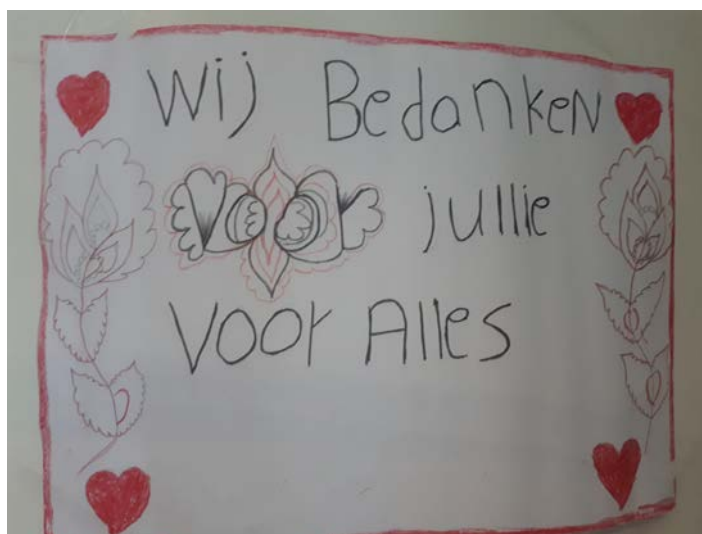 Wij Bedanken
Voor jullie
Voor Alles